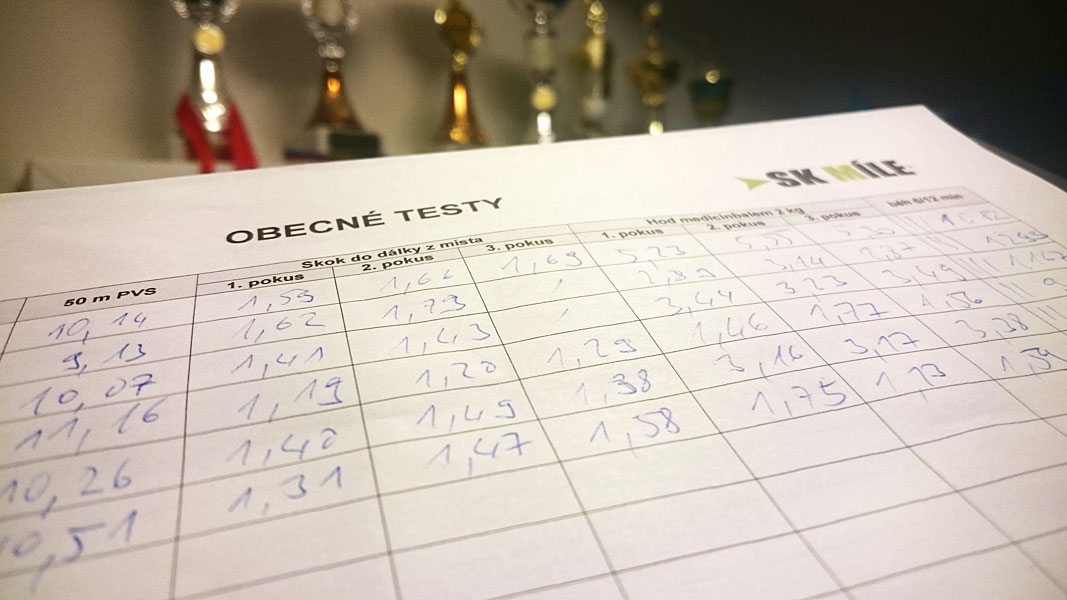 SK MÍLE
OBECNÉ TESTY
50 m PVS Skok do dálky z místa Hod medicinbalem 2 kg běh 6/12 min
1. pokus 2. pokus 3. pokus 1. pokus 2. pokus 3. pokus
10,14 1,59 1,66 1,69 5,23
9,13 1,62 1,73 , 2,89 3,14
10,07 1,41 1,43 , 3,44 3,23 3,49
11,16 1,19 1,20 1,29 1,46 1,77 1,56
10,26 1,40 1,49 1,38 3,16 3,17 3,38
10,51 1,31 1,47 1,58 1,75 1,73